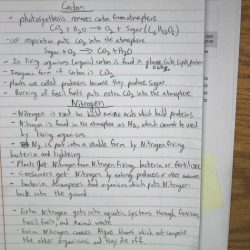 Carbon
- photosynthesis removes carbon from atmosphere
CO2 + H2O → O2 + Sugar (C6H12O6)
- cell respiration puts CO2 into the atmosphere
Sugar + O2 → CO2 + H2O
- In living organisms (organic) carbon is found in glucose, Carbs, Lipids, Proteins
- Inorganic form of Carbon is CO2
- plants are called producers because they produce sugar.
- Burning of fossil fuels puts extra CO2 into the atmosphere
Nitrogen
- Nitrogen is used to build amino acids which build proteins.
- Nitrogen is found in the atmosphere as N2, which cannot be used by living organisms.
- N2 is put into a usable form by Nitrogen fixing
bacteria and lightning.
- Plants get Nitrogen from Nitrogen fixing bacteria or fertilizer
- Consumers get Nitrogen by eating producers or other consumers
- bacteria decomposes dead organisms which puts Nitrogen
back into the ground
- Extra Nitrogen gets into aquatic systems through fertilizer,
Fossil fuels, and Animal waste.
- Extra Nitrogen causes Algae blooms which outcompete
the other organisms and they die off.